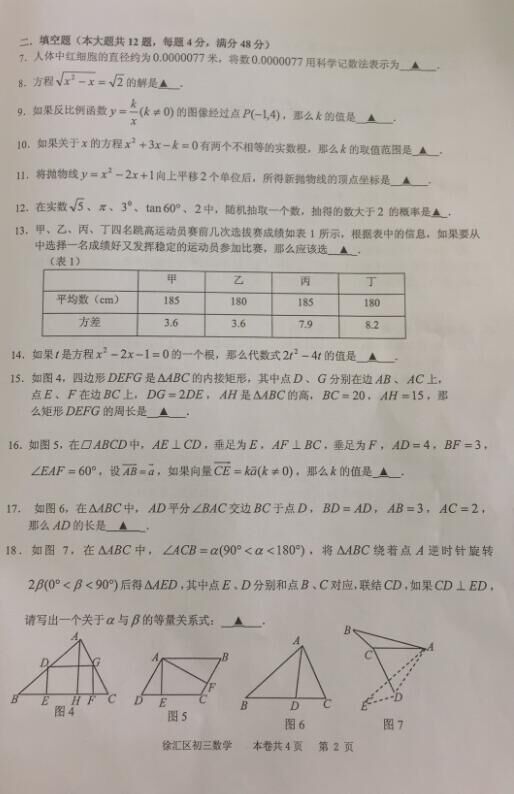 二．填空题（本大题共12题，每题4分，满分48分）
7．人体中红细胞的直径约为0.0000077米，将数0.0000077用科学记数法表示为 ▲ ．
8．方程√(x²－x)＝√2的解是 ▲ ．
9．如果反比例函数y＝k/x(k≠0)的图像经过点P(－1,4)，那么k的值是 ▲ ．
10．如果关于x的方程x²＋3x－k＝0有两个不相等的实数根，那么k的取值范围是 ▲ ．
11．将抛物线y＝x²－2x＋1向上平移2个单位后，所得新抛物线的顶点坐标是 ▲ ．
12．在实数√5、π、3⁰、tan60°、2中，随机抽取一个数，抽得的数大于2的概率是 ▲ ．
13．甲、乙、丙、丁四名跳高运动员赛前几次选拔赛成绩如表1所示，根据表中的信息，如果要从
中选择一名成绩好又发挥稳定的运动员参加比赛，那么应该选 ▲ ．
（表1）
甲 乙 丙 丁
平均数（cm） 185 180 185 180
方差 3.6 3.6 7.9 8.2
14．如果t是方程x²－2x－1＝0的一个根，那么代数式2t²－4t的值是 ▲ ．
15．如图4，四边形DEFG是ΔABC的内接矩形，其中点D、G分别在边AB、AC上，
点E、F在边BC上，DG＝2DE，AH是ΔABC的高，BC＝20，AH＝15，那
么矩形DEFG的周长是 ▲ ．
16．如图5，在□ABCD中，AE⊥CD，垂足为E，AF⊥BC，垂足为F，AD＝4，BF＝3，
∠EAF＝60°，设AB⃗＝a⃗，如果向量CE⃗＝ka⃗(k≠0)，那么k的值是 ▲ ．
17．如图6，在ΔABC中，AD平分∠BAC交边BC于点D，BD＝AD，AB＝3，AC＝2，
那么AD的长是 ▲ ．
18．如图7，在ΔABC中，∠ACB＝α(90°＜α＜180°)，将ΔABC绕着点A逆时针旋转
2β(0°＜β＜90°)后得ΔAED，其中点E、D分别和点B、C对应，联结CD，如果CD⊥ED，
请写出一个关于α与β的等量关系式： ▲ ．
A D G B E H F C
图4
A B F D E C
图5
A B D C
图6
B C A E D
图7
徐汇区初三数学 本卷共4页 第2页